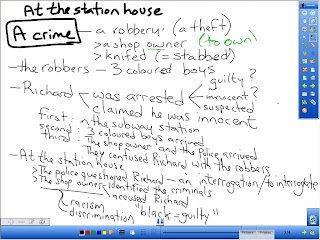 At the station house
A crime - a robbery (a theft)
> a shop owner (to own)
> knifed (= stabbed)
- the robbers - 3 coloured boys
guilty?
- Richard was arrested innocent?
claimed he was innocent suspected
first: in the subway station
second: 3 coloured boys arrived
third The shop owner and the police arrived
They confused Richard with the robbers.
- At the station house
> The police questioned Richard - an interrogation/to interrogate
> The shop owner identified the criminals
accused Richard
racism
discrimination "black = guilty"